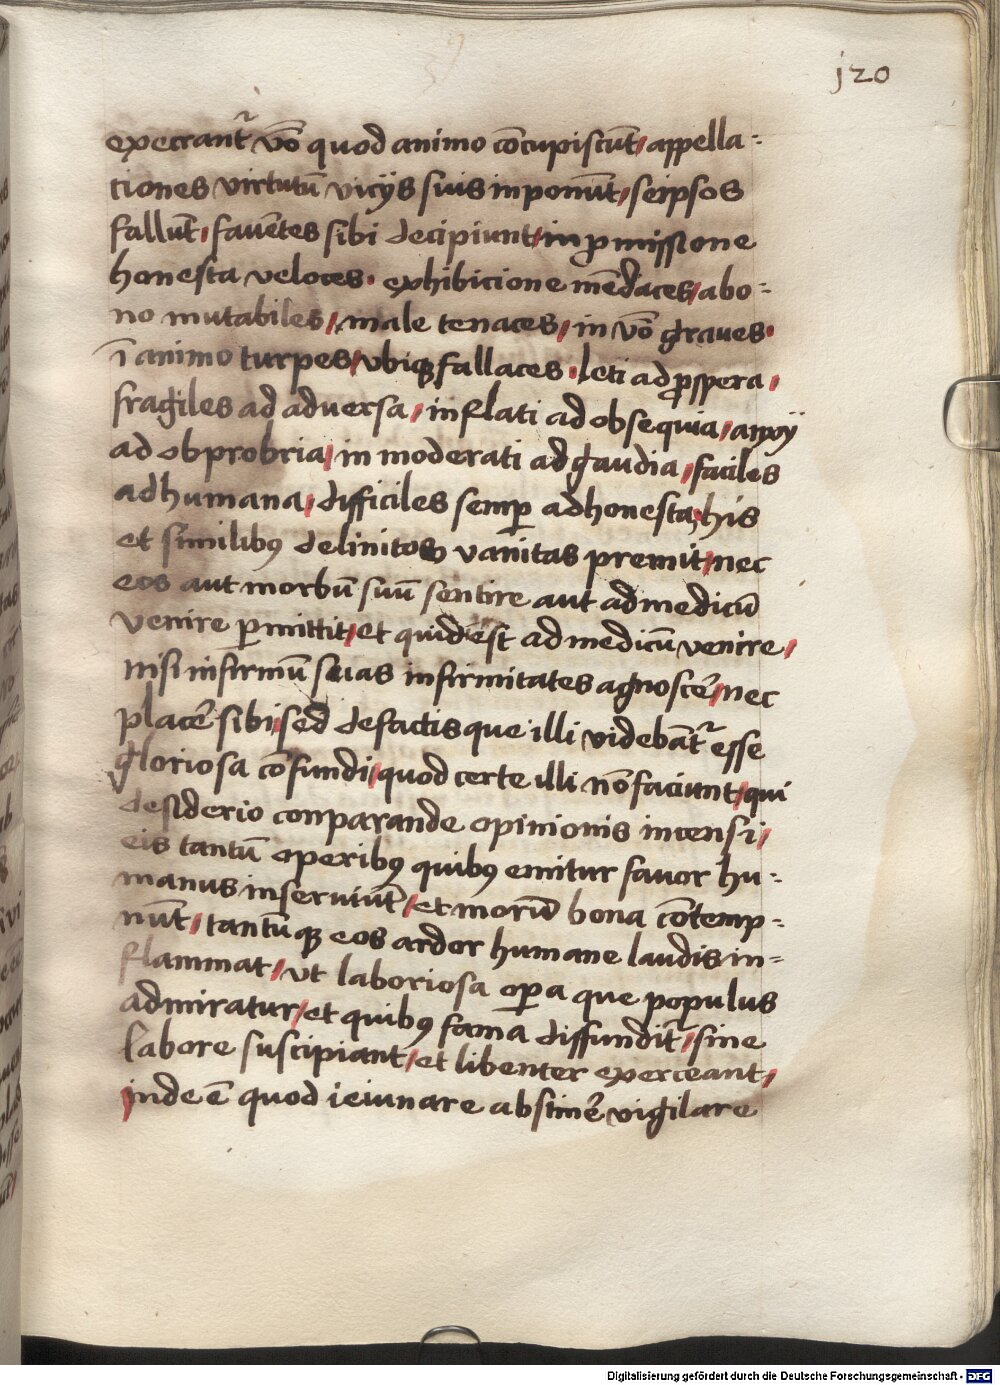 j20
execrant᷑ vō quod animo cōcupiscūt / appella-
tiones virtutū vicijs suis inponūt / seipsos
fallūt · favētes sibi decipiunt / in ꝓmissione
honesta veloces · exhibicione mēdaces / abo-
no mutabiles / male tenaces / in vō graves ·
ī animo turpes / vbiqꝫ fallaces · leti ad ꝓspera /
fragiles ad adversa / inflati ad obsequia / anxij
ad obprobria / in moderati ad gaudia / faciles
ad humana / difficiles semꝑ ad honesta / his
et similibꝰ delinitos vanitas premit / nec
eos aut morbū suū sentire aut ad medicū
venire ꝑmittit / et quid est ad medicū venire /
nisi infirmū suas infirmitates agnoscē / nec
placē sibi / sed de factis que illi videbāt᷑ esse
gloriosa cōfundi / quod certe illi nō faciunt / qui
desiderio conparande opinionis incensi /
eis tantū operibꝰ quibꝰ emitur favor hu-
manus inserviūt / et morū bona cōtemp-
nūt / tantūqꝫ eos ardor humane laudis in-
flammat / vt laboriosa oꝑa que populus
admiratur / et quibꝰ fama diffundit᷑ / sine
labore suscipiant / et libenter exerceant /
inde ē quod ieiunare abstinē vigilare
Digitalisierung gefördert durch die Deutsche Forschungsgemeinschaft - DFG